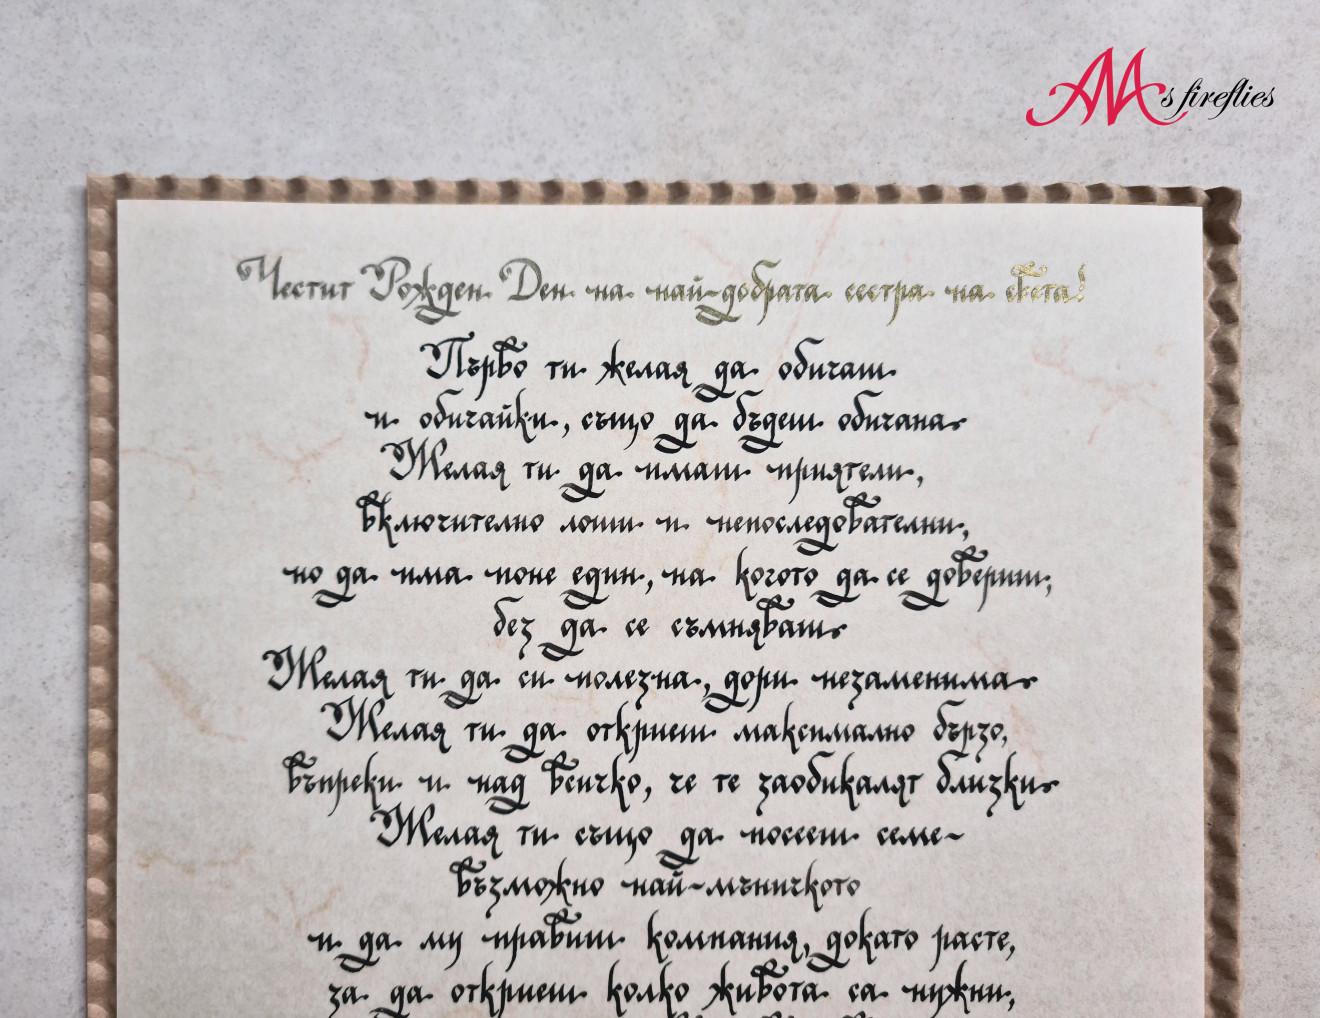 AM's fireflies
Честит Рожден Ден на най-добрата сестра на света!
Първо ти желая да обичаш
и обичайки, също да бъдеш обичана.
Желая ти да имаш приятели,
включително лоши и непоследователни,
но да има поне един, на когото да се довериш,
без да се съмняваш.
Желая ти да си полезна, дори незаменима.
Желая ти да откриеш максимално бързо,
въпреки и над всичко, че те заобикалят близки.
Желая ти също да посееш семе-
възможно най-мъничкото
и да му правиш компания, докато расте,
за да откриеш колко живота са нужни,